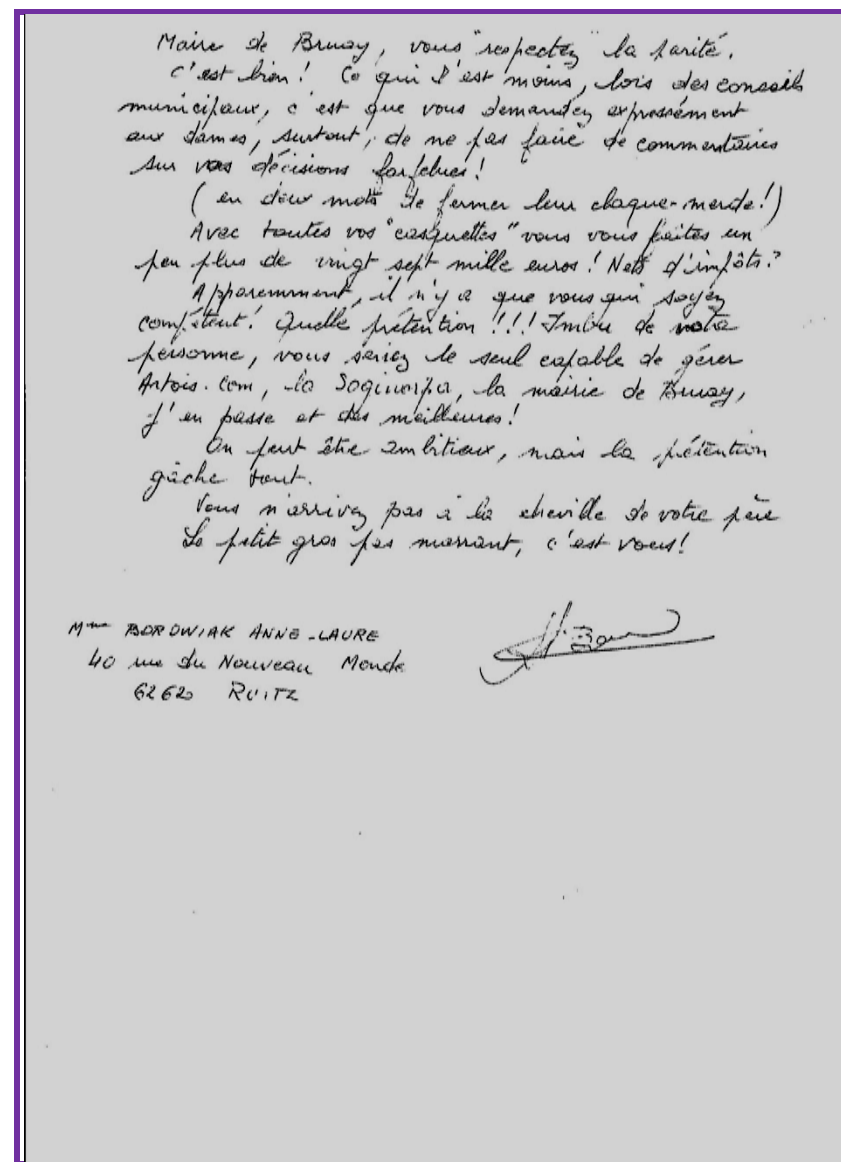 Maire de Bruay, vous "respectez" la parité.
C'est bien ! Ce qui l'est moins, lors des conseils
municipaux, c'est que vous demandez expressément
aux dames, surtout, de ne pas faire de commentaires
sur vos décisions farfelues !
(en deux mots de fermer leur claque-merde !)
Avec toutes vos "casquettes" vous vous faites un
peu plus de vingt sept mille euros ! Nets d'impôts ?
Apparemment, il n'y a que vous qui soyez
compétent ! Quelle prétention !!! Imbu de votre
personne, vous seriez le seul capable de gérer
Artois.com, la Soginorpa, la mairie de Bruay,
j'en passe et des meilleures !
On peut être ambitieux, mais la prétention
gâche tout.
Vous n'arrivez pas à la cheville de votre père
Le petit gros pas marrant, c'est vous !
Mme BOROWIAK ANNE-LAURE
40 rue du Nouveau Monde
62620 RUITZ